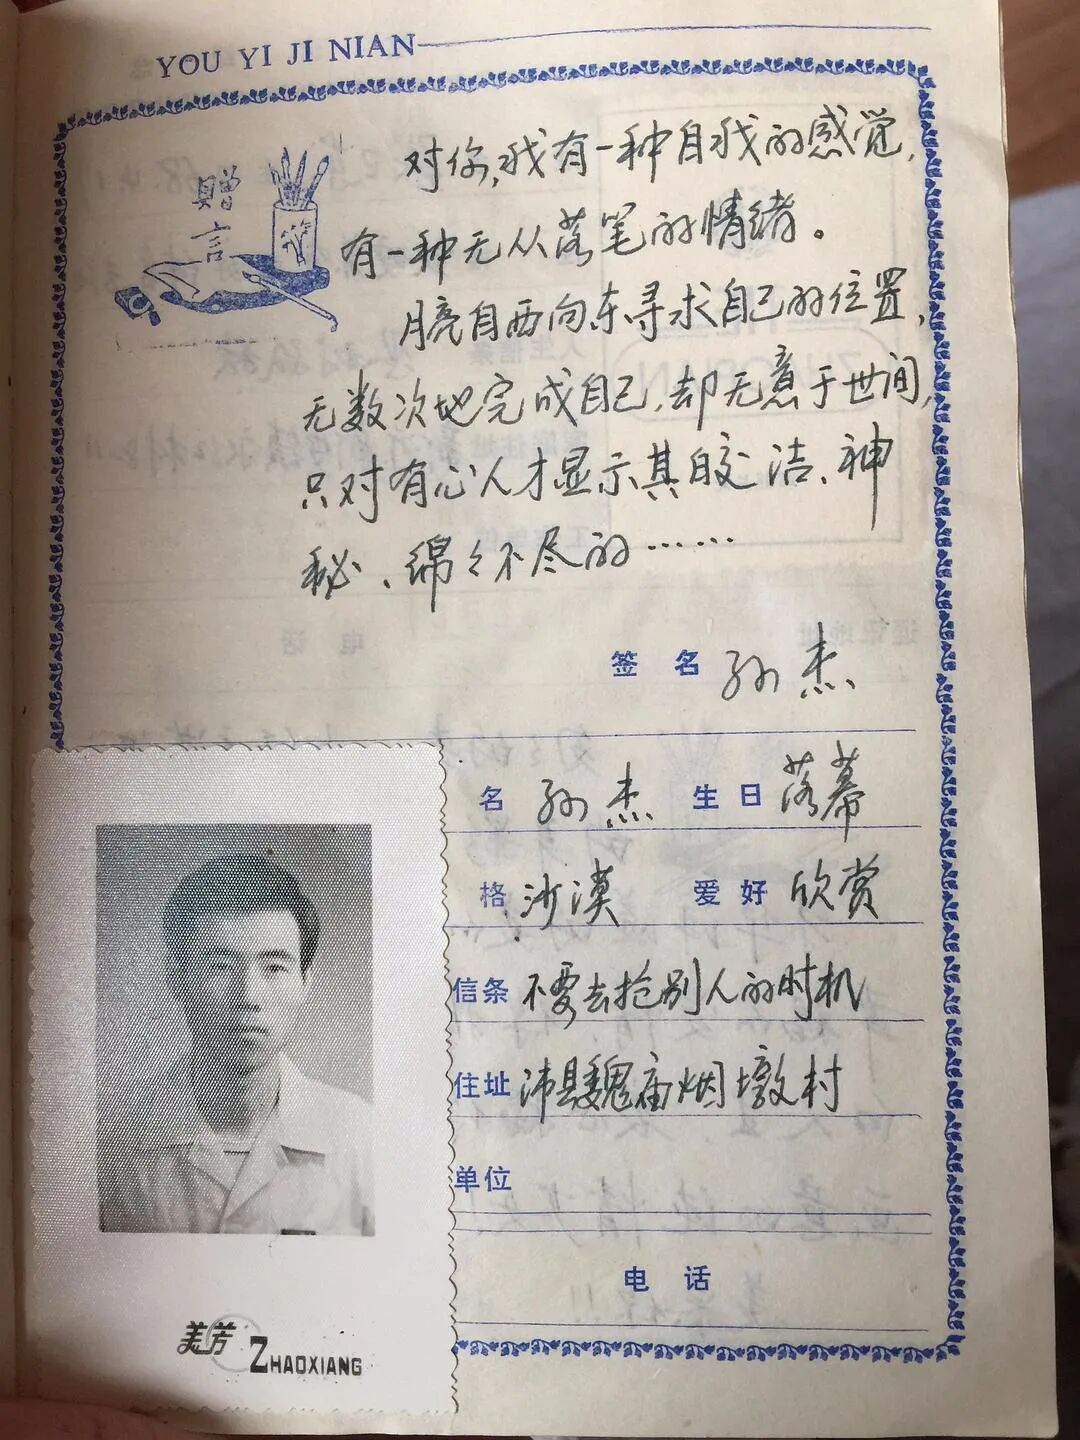 YOU YI JI NIAN
赠言
对你,我有一种自我的感觉,
有一种无从落笔的情绪。
月亮自西向东寻求自己的位置,
无数次地完成自己,却无意于世间,
只对有心人才显示其皎洁、神
秘、绵々不尽的……
签名 孙杰
名 孙杰 生日 落幕
格 沙漠 爱好 欣赏
信条 不要去抢别人的时机
住址 沛县魏庙烟墩村
单位
电话
美芳 ZHAOXIANG